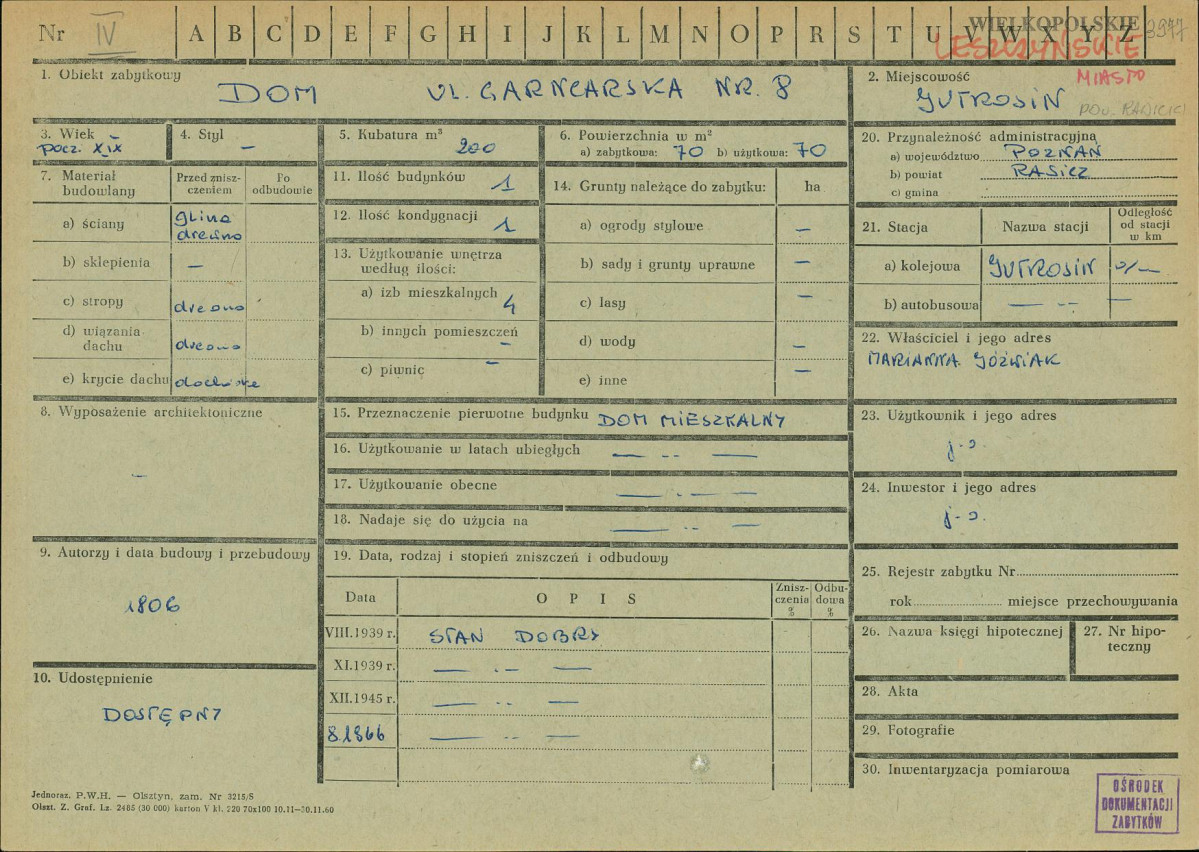 Nr IV A B C D E F G H I J K L M N O P R S T U V W X Y Z
WIELKOPOLSKIE 3977
LESZCZYŃSKIE
MIASTO
1. Obiekt zabytkowy
DOM UL. GARNCARSKA NR. 8
2. Miejscowość
JUTROSIN
3. Wiek
pocz. XIX
4. Styl
—
5. Kubatura m³
200
6. Powierzchnia w m²
a) zabytkowa: 70 b) użytkowa: 70
20. Przynależność administracyjna
a) województwo POZNAŃ
b) powiat RAWICZ
c) gmina
7. Materiał budowlany
Przed zniszczeniem
Po odbudowie
a) ściany glina drewno
b) sklepienia —
c) stropy drewno
d) wiązania dachu drewno
e) krycie dachu dachówka
11. Ilość budynków 1
12. Ilość kondygnacji 1
13. Użytkowanie wnętrza
według ilości:
a) izb mieszkalnych 4
b) innych pomieszczeń —
c) piwnic —
14. Grunty należące do zabytku: ha
a) ogrody stylowe —
b) sady i grunty uprawne —
c) lasy —
d) wody —
e) inne —
21. Stacja
Nazwa stacji
Odległość
od stacji
w km
a) kolejowa JUTROSIN
b) autobusowa — -- —
22. Właściciel i jego adres
MARIANNA JÓŹWIAK
8. Wyposażenie architektoniczne
—
15. Przeznaczenie pierwotne budynku DOM MIESZKALNY
16. Użytkowanie w latach ubiegłych — .. —
17. Użytkowanie obecne — . — —
18. Nadaje się do użycia na — .. —
23. Użytkownik i jego adres
j.w.
24. Inwestor i jego adres
j.w.
9. Autorzy i data budowy i przebudowy
1806
10. Udostępnienie
DOSTĘPNY
19. Data, rodzaj i stopień zniszczeń i odbudowy
Data
OPIS
Zniszczenia
%
Odbudowa
%
VIII.1939 r. STAN DOBRY
XI.1939 r. — .. —
XII.1945 r. — .. —
8.1966 — .. —
25. Rejestr zabytku Nr
rok miejsce przechowywania
26. Nazwa księgi hipotecznej
27. Nr hipoteczny
28. Akta
29. Fotografie
30. Inwentaryzacja pomiarowa
Jednoraz. P.W.H. — Olsztyn, zam. Nr 3215/S
Olszt. Z. Graf. Lz. 2485 (30 000) karton V kl. 220 70x100 10.11—30.11.60
OŚRODEK
DOKUMENTACJI
ZABYTKÓW